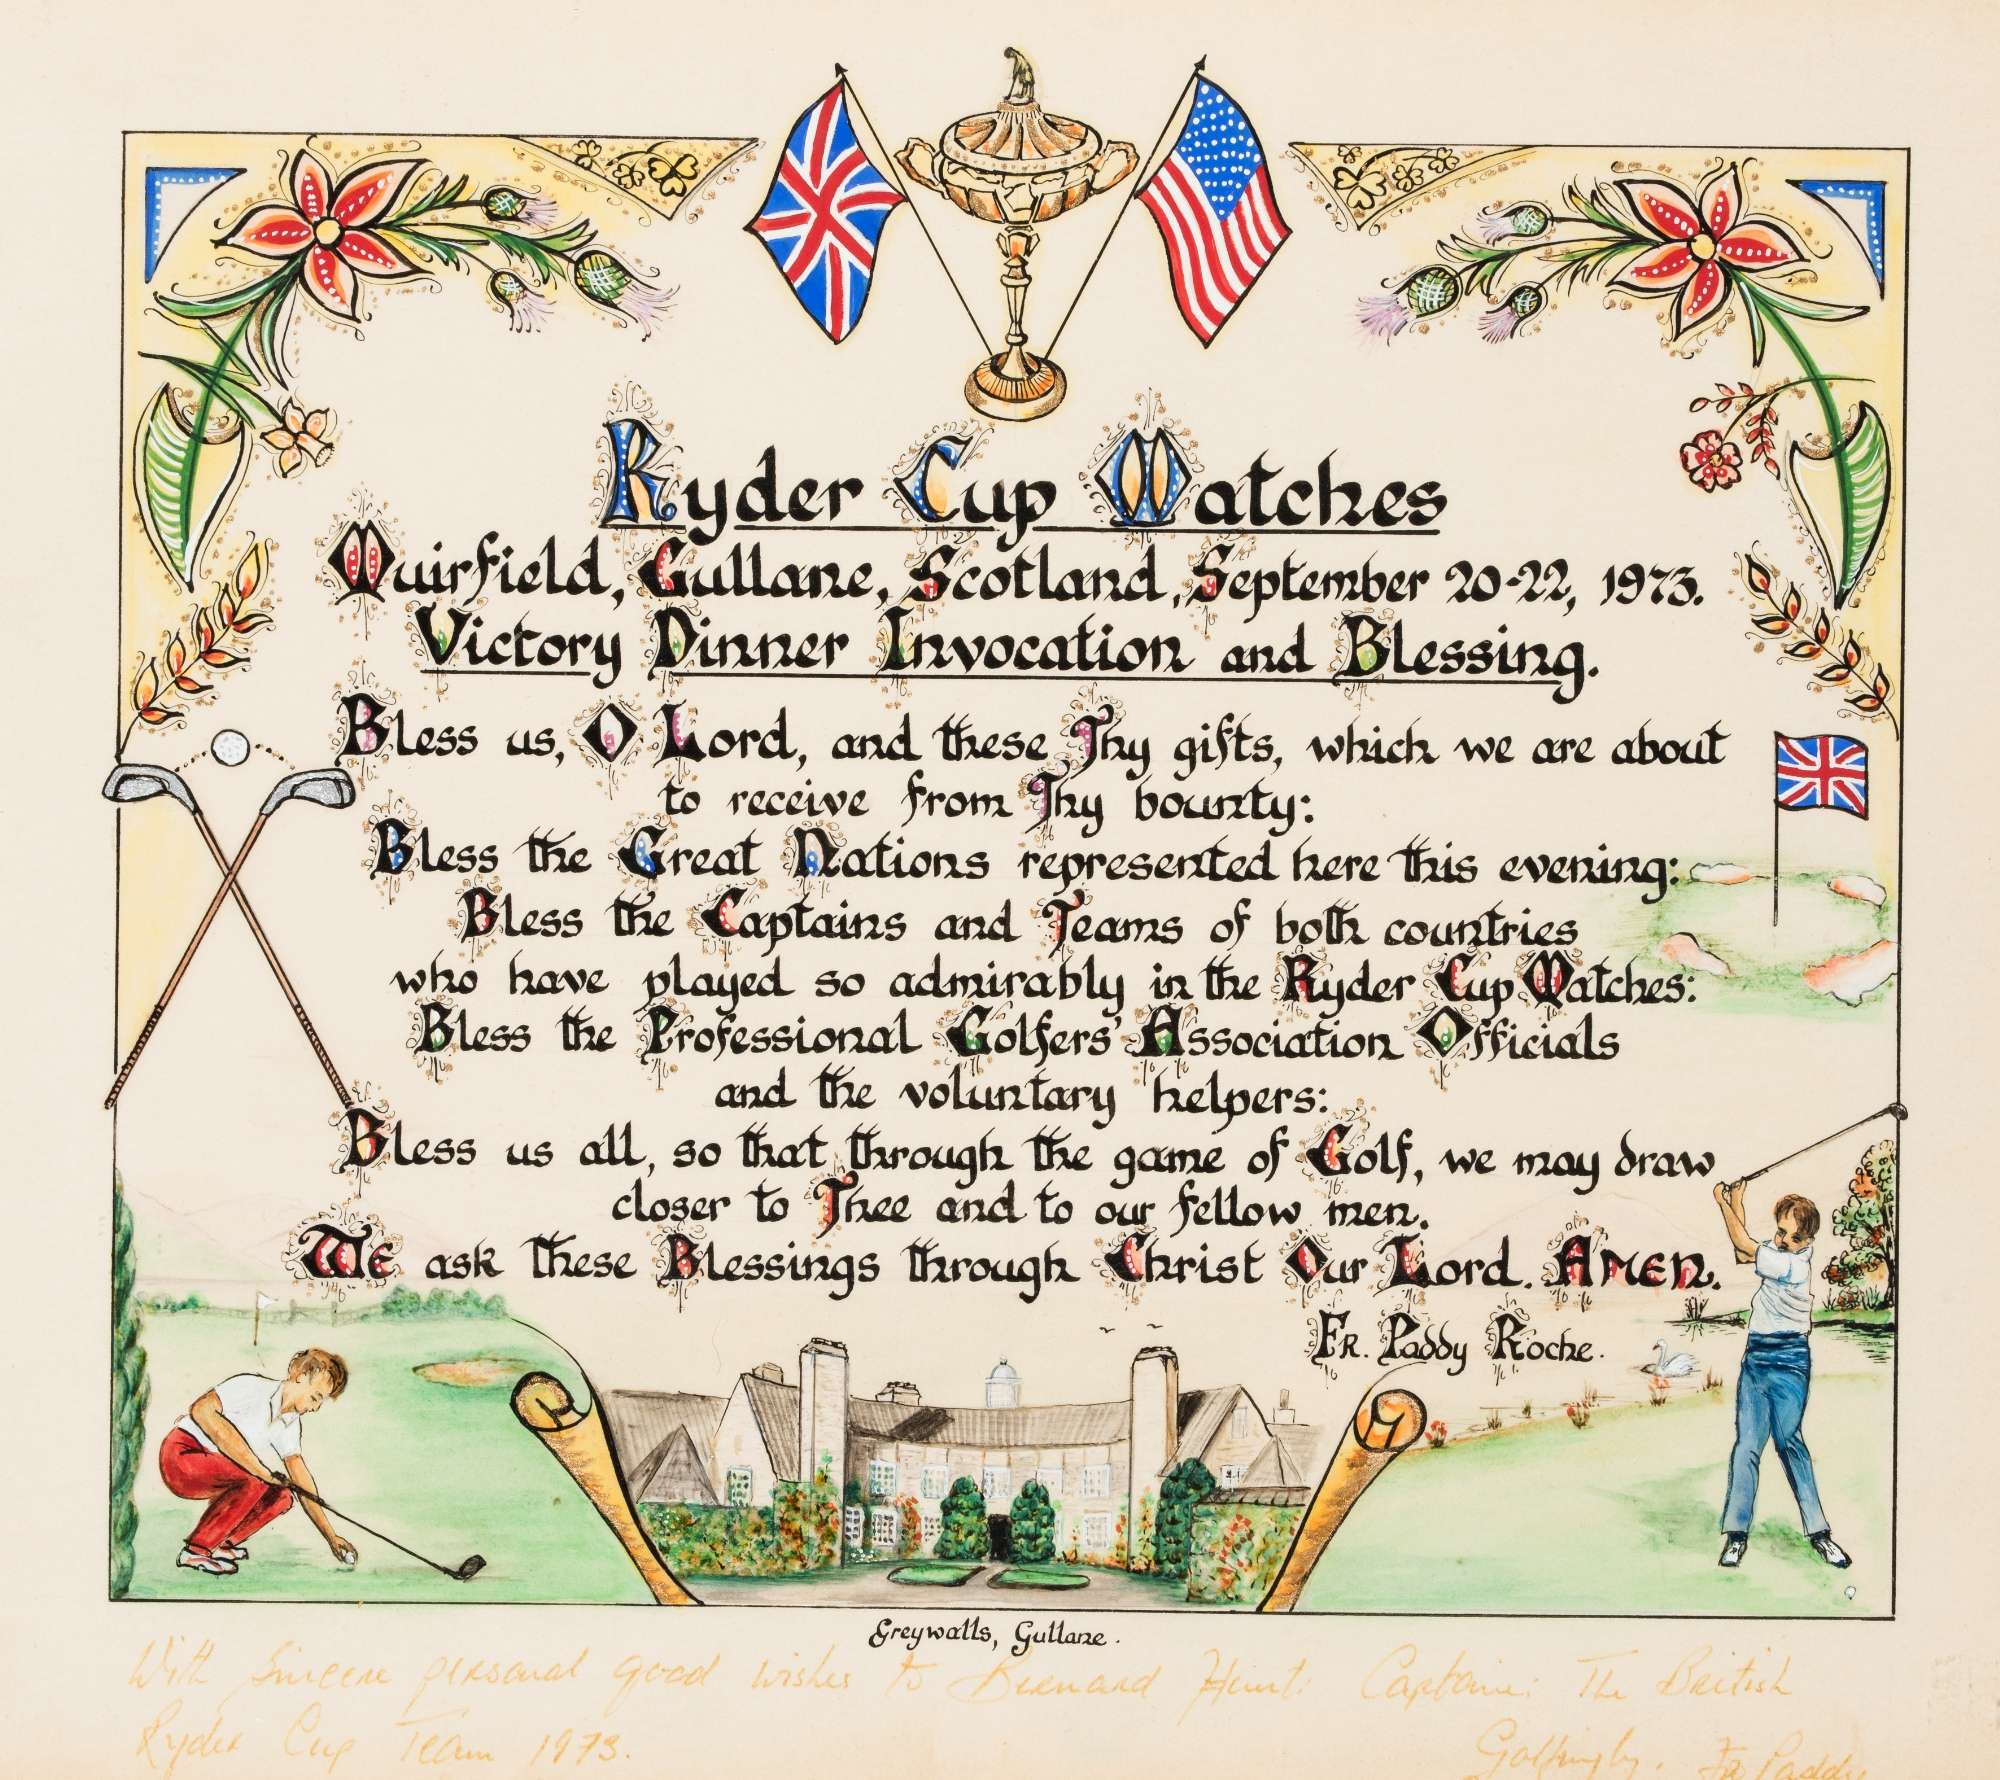 Ryder Cup Matches
Muirfield, Gullane, Scotland, September 20-22, 1973.
Victory Dinner Invocation and Blessing.
Bless us, O Lord, and these Thy gifts, which we are about
to receive from Thy bounty:
Bless the Great Nations represented here this evening:
Bless the Captains and Teams of both countries
who have played so admirably in the Ryder Cup Matches:
Bless the Professional Golfers' Association Officials
and the voluntary helpers:
Bless us all, so that through the game of Golf, we may draw
closer to Thee and to our fellow men.
We ask these Blessings through Christ Our Lord. Amen.
Fr. Paddy Roche.
Greywalls, Gullane.
With sincere personal good wishes to Bernard Hunt: Captain: The British
Ryder Cup Team 1973.
Golfingly, Fr Paddy